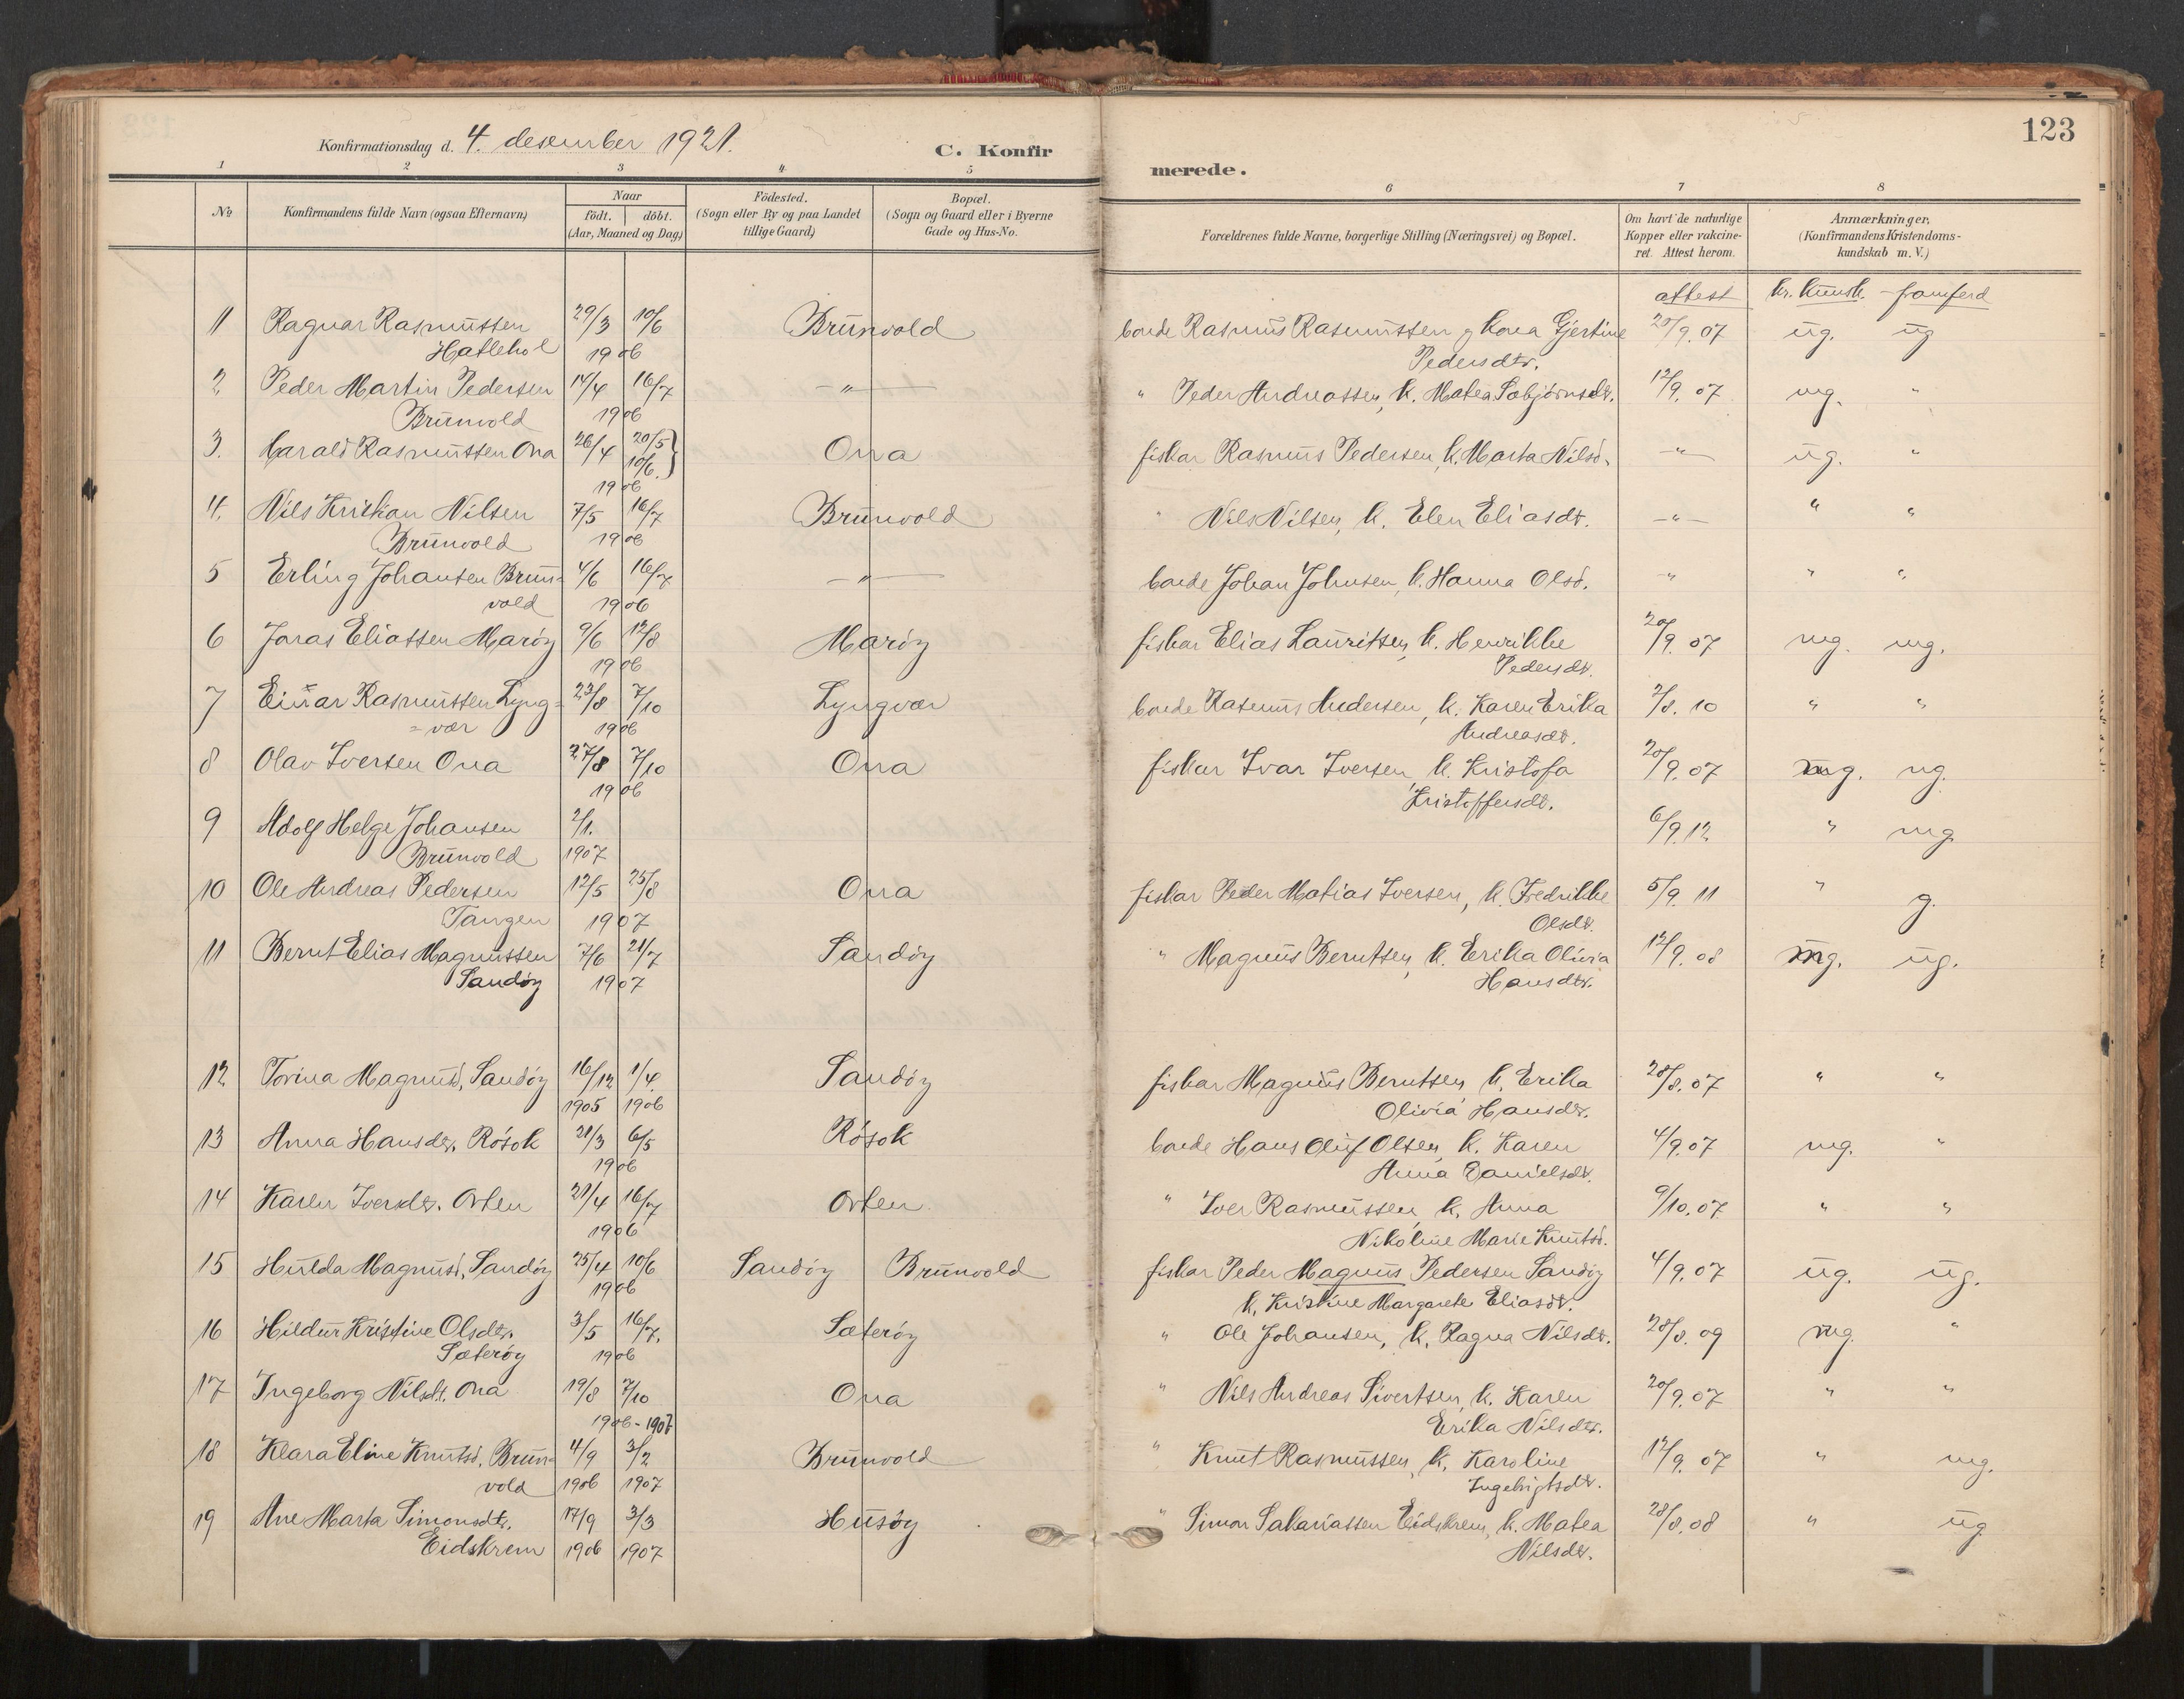 123
Konfirmationsdag d. 4. desember 1921.
C. Konfir
merede.
1 2 3 4 5 6 7 8
No
Konfirmandens fulde Navn (ogsaa Efternavn)
Naar
födt. döbt.
(Aar, Maaned og Dag)
Födested.
(Sogn eller By og paa Landet
tillige Gaard)
Bopæl.
(Sogn og Gaard eller i Byerne
Gade og Hus-No.
Forældrenes fulde Navne, borgerlige Stilling (Næringsvei) og Bopæl.
Om havt de naturlige
Kopper eller vakcine-
ret. Attest herom.
Anmærkninger,
(Konfirmandens Kristendoms-
kundskab m.V.)
attest kr. kunsk. - framferd
1 Ragnar Rasmussen 29/3 10/6 Brunvold bonde Rasmus Rasmussen og kona Gjertine 20/9. 07 ug. ug
Hatlehol 1906 Pedersdtr.
2 Peder Martin Pedersen 14/4 16/7 -"- " Peder Andreassen, k. Matea Sæbjørnsdt. 12/9. 07 mg. "
Brunvold 1906
3. Harald Rasmussen Ona 26/4 20/5 10/6. } Ona fiskar Rasmus Pedersen, k. Marta Nilsd. -"- ug. "
1906
4. Nils Kristian Nilsen 7/5 16/7 Brunvold " Nils Nilsen, k. Elen Eliasdt. -"- " "
Brunvold 1906
5 Erling Johansen Brun= 4/6 16/7 -"- bonde Johan Johnsen, k. Hanna Olsd. -" " "
vold 1906
6 Jonas Eliassen Marøy 9/6 12/8 Marøy fiskar Elias Lauritsen, k. Henrikke 20/9. 07 mg. mg.
1906 Pedersdt.
7 Einar Rasmussen Lyng= 23/8 7/10 Lyngvær bonde Rasmus Andersen, k. Karen Erika 2/8. 10 " "
=vær 1906 Andreasdt.
8 Olav Iversen Ona 27/8 7/10 Ona fiskar Ivar Iversen, k. Kristofa 20/9. 07 mg. ug.
1906 Kristoffersdt.
9 Adolf Helge Johansen 2/1. 6/9.12 " mg.
Brunvold 1907
10 Ole Andreas Pedersen 12/5 25/8 Ona fiskar Peder Matias Iversen, k. Fredrikke 5/9. 11 " g.
Tangen 1907 Olsdt.
11 Bernt Elias Magnussen 7/6 21/7 Sandøy " Magnus Berntsen, k. Erika Olivia 12/9. 08 mg. ug.
Sandøy 1907 Hansdtr.
12 Torina Magnusd, Sandøy 16/12 1/4. Sandøy fiskar Magnus Berntsen, k. Erika 28/8. 07 " "
1905 1906 Olivia Hansdtr.
13 Anna Hansdtr. Røsok 21/3 6/5 Røsok bonde Hans Oluf Olsen, k. Karen 4/9.07 mg. "
1906 Anna Danielsdt.
14 Karen Iversdtr. Orten 21/4 16/7 Orten. " Iver Rasmussen, k. Anna 9/10.07 " "
1906 Nikoline Marie Knutsd.
15 Hulda Magnusd, Sandøy 25/4 10/6 Sandøy Brunvold fiskar Peder Magnus Pedersen Sandøy 4/9. 07 ug. ug.
1906 k. Kristine Margarete Eliasdt.
16 Hildur Kristine Olsdtr. 3/5 16/7. Sæterøy " Ole Johansen, k. Ragna Nilsdt. 28/8. 09 mg. "
Sæterøy 1906
17 Ingeborg Nilsdt. Ona 19/8 7/10 Ona " Nils Andreas Sivertsen, k. Karen 20/9.07 " "
1906 - 1907 Erika Nilsdtr.
18 Klara Eline Knutsd. Brun= 4/9 3/2 Brunvold " Knut Rasmussen, k. Karoline 12/9. 07 " mg.
vold 1906 1907 Ingebrigtsdtr.
19 Ane Marta Simonsdtr. 17/9 3/3 Husøy " Simon Sakariassen Eidskrem, k. Matea 28/8.08 " ug
Eidskrem 1906 1907 Nilsdtr.